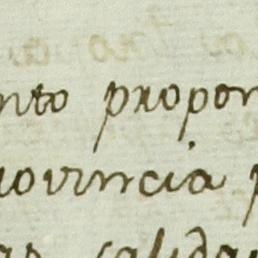 nto propon
rovincia p
as calida